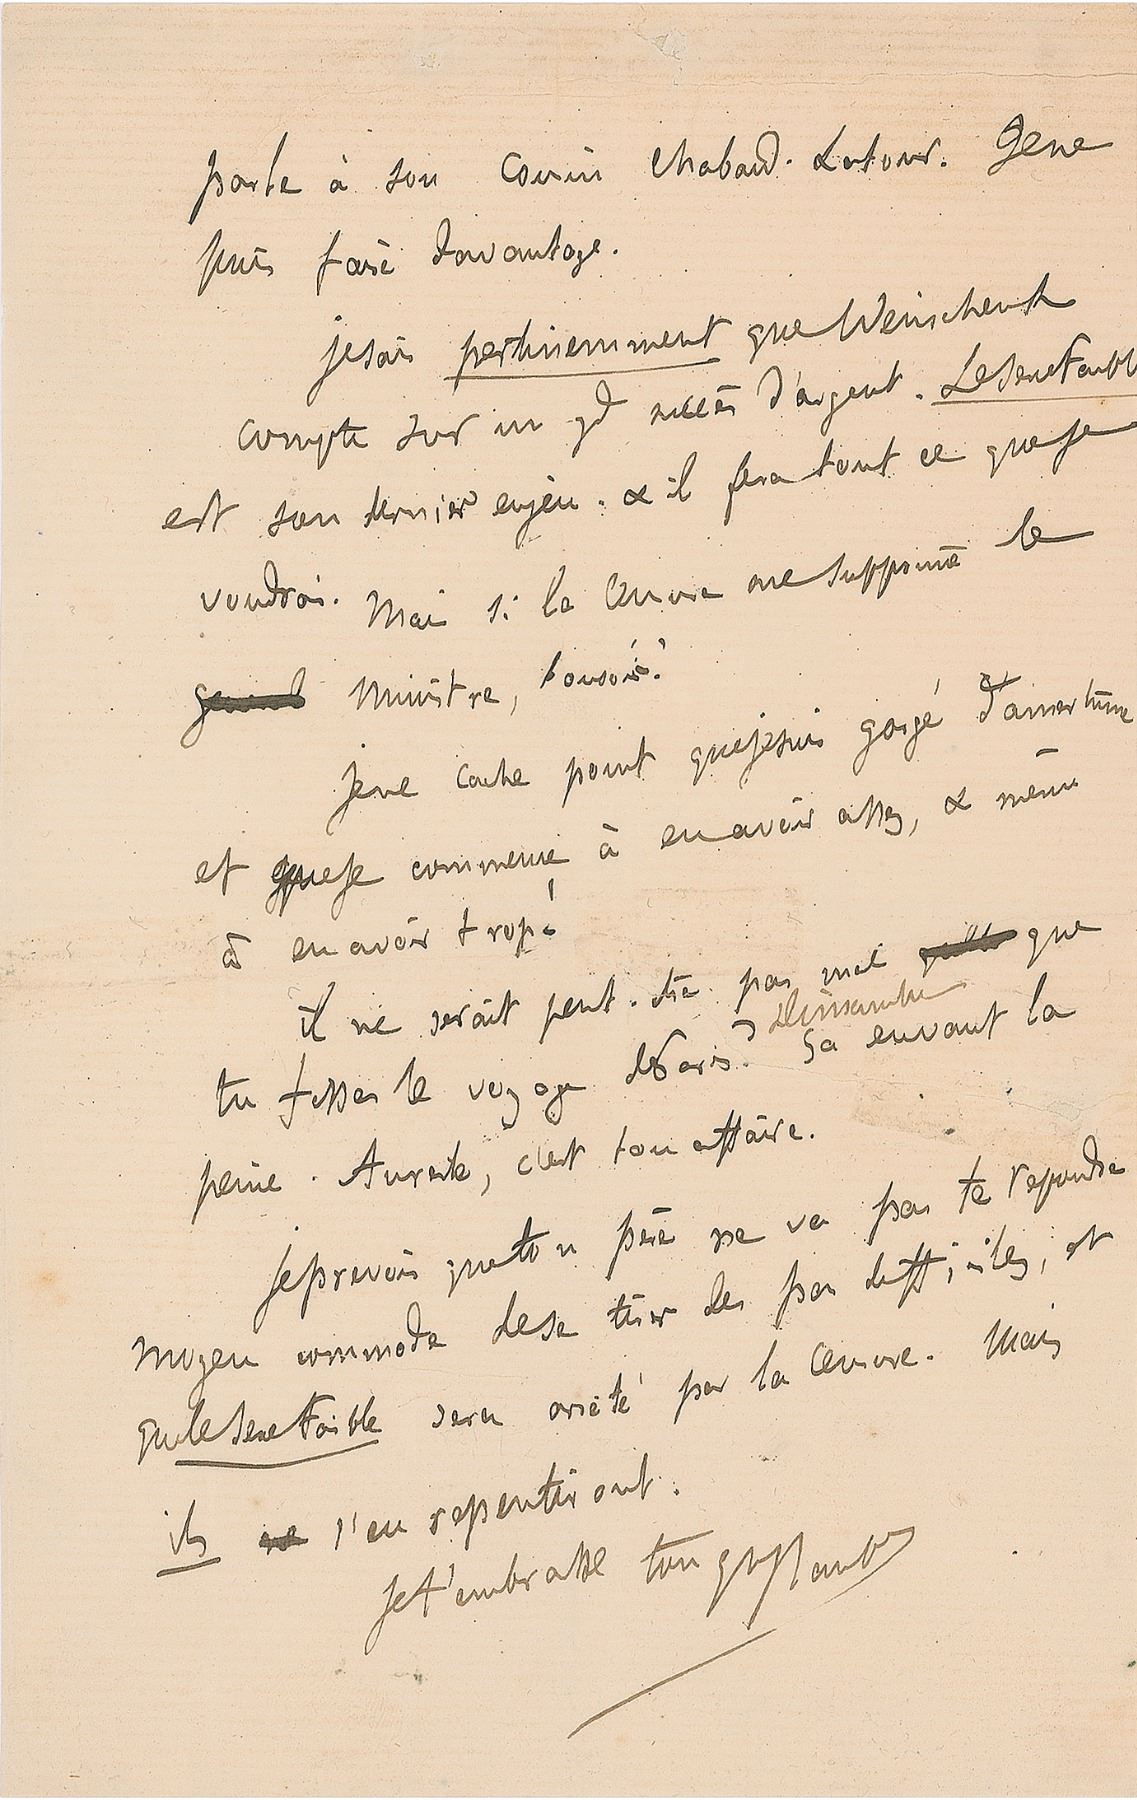 parle à son cousin Chabaud-Latour. Je ne
puis faire davantage.
je sais pertinemment que Weinschenk
compte sur un gd succès d'argent. Le Sexe Faible
est son dernier enjeu. & il fera tout ce que je
voudrai. Mais si la Censure me supprime le
Ministre, bonsoir!
Je ne cache point que je suis gorgé d'amertume
et que je commence à en avoir assez, & même
à en avoir trop!
il ne serait peut-être pas mal que
tu fisses le voyage de Paris? Dimanche
Ça en vaut la
peine. Au reste, c'est ton affaire.
Je prévois que ton père ne va pas te répondre
moyen commode de se tirer des pas difficiles, et
que le Sexe Faible sera arrêté par la Censure. Mais
ils s'en repentiront.
Je t'embrasse ton gve Flaubert